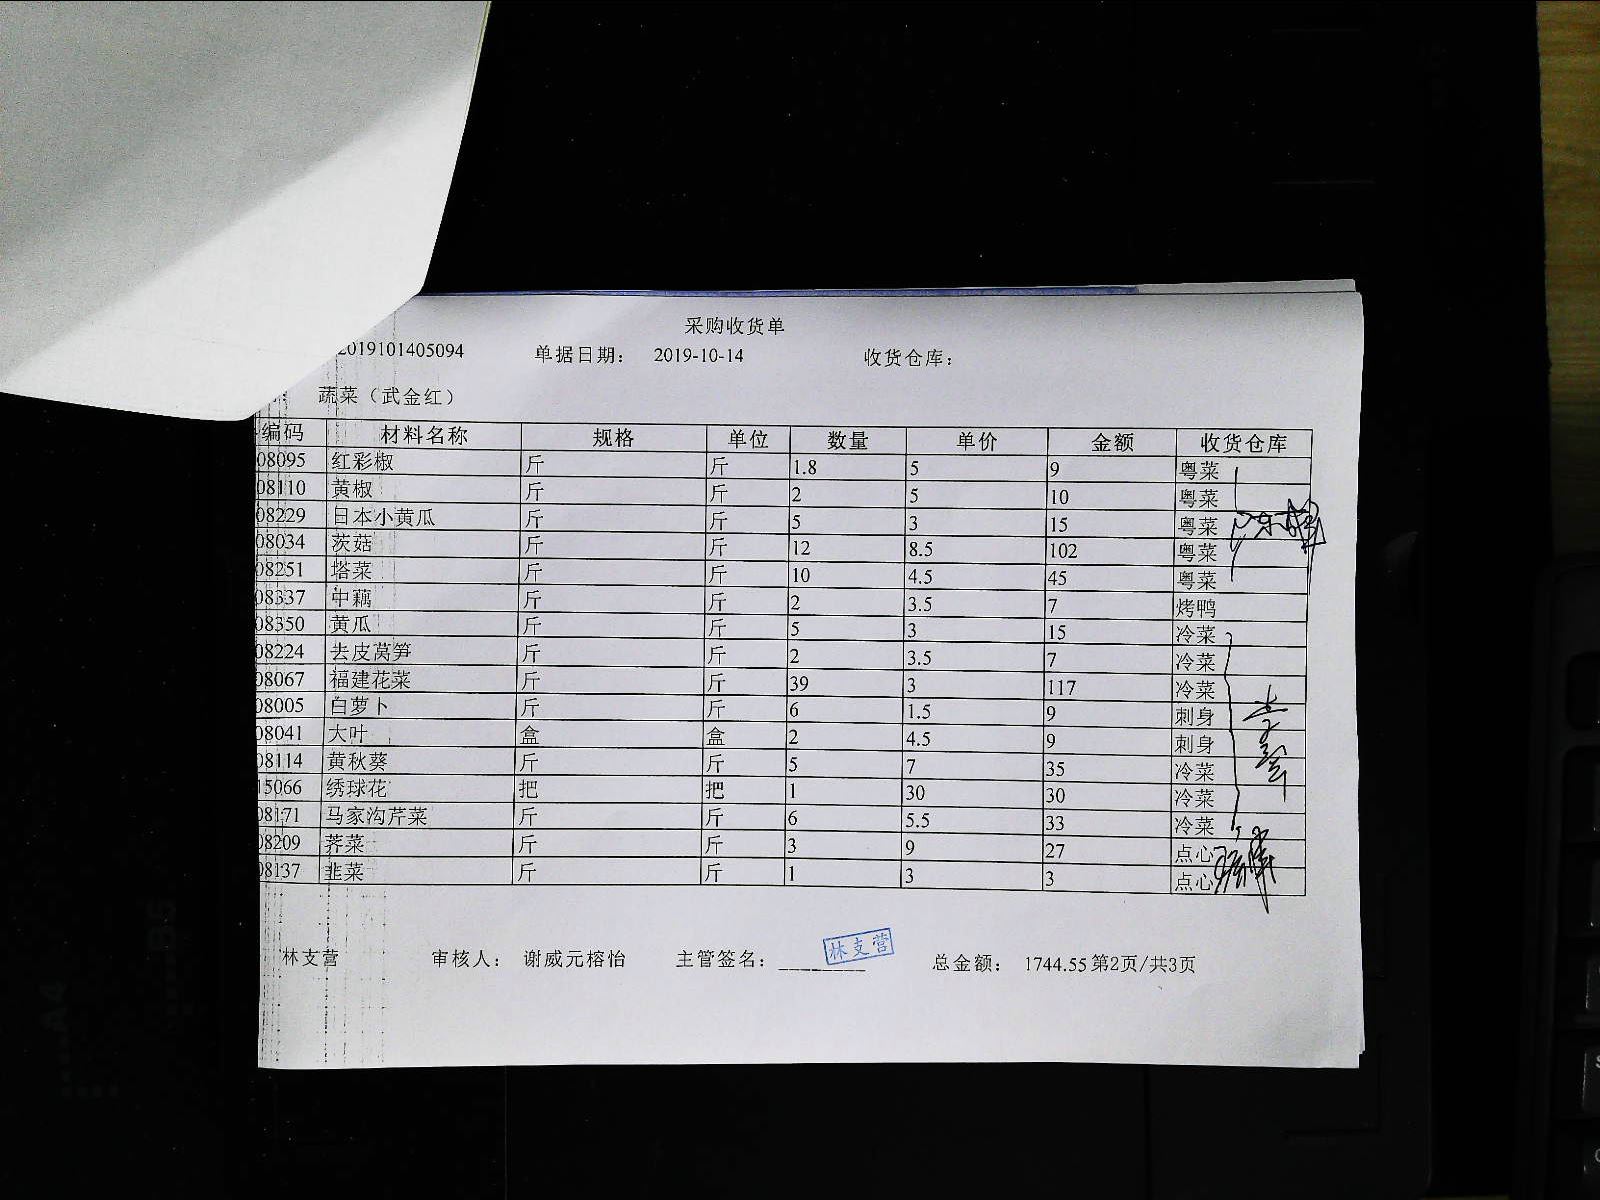 采购收货单
2019101405094 单据日期： 2019-10-14 收货仓库：
蔬菜（武金红）
编码 材料名称 规格 单位 数量 单价 金额 收货仓库
08095 红彩椒 斤 斤 1.8 5 9 粤菜
08110 黄椒 斤 斤 2 5 10 粤菜
08229 日本小黄瓜 斤 斤 5 3 15 粤菜
08034 茨菇 斤 斤 12 8.5 102 粤菜
08251 塔菜 斤 斤 10 4.5 45 粤菜
08337 中藕 斤 斤 2 3.5 7 烤鸭
08350 黄瓜 斤 斤 5 3 15 冷菜
08224 去皮莴笋 斤 斤 2 3.5 7 冷菜
08067 福建花菜 斤 斤 39 3 117 冷菜
08005 白萝卜 斤 斤 6 1.5 9 刺身
08041 大叶 盒 盒 2 4.5 9 刺身
08114 黄秋葵 斤 斤 5 7 35 冷菜
15066 绣球花 把 把 1 30 30 冷菜
08171 马家沟芹菜 斤 斤 6 5.5 33 冷菜
08209 荠菜 斤 斤 3 9 27 点心
08137 韭菜 斤 斤 1 3 3 点心
林支营 审核人： 谢威元榕怡 主管签名： 林支营 总金额： 1744.55 第2页/共3页